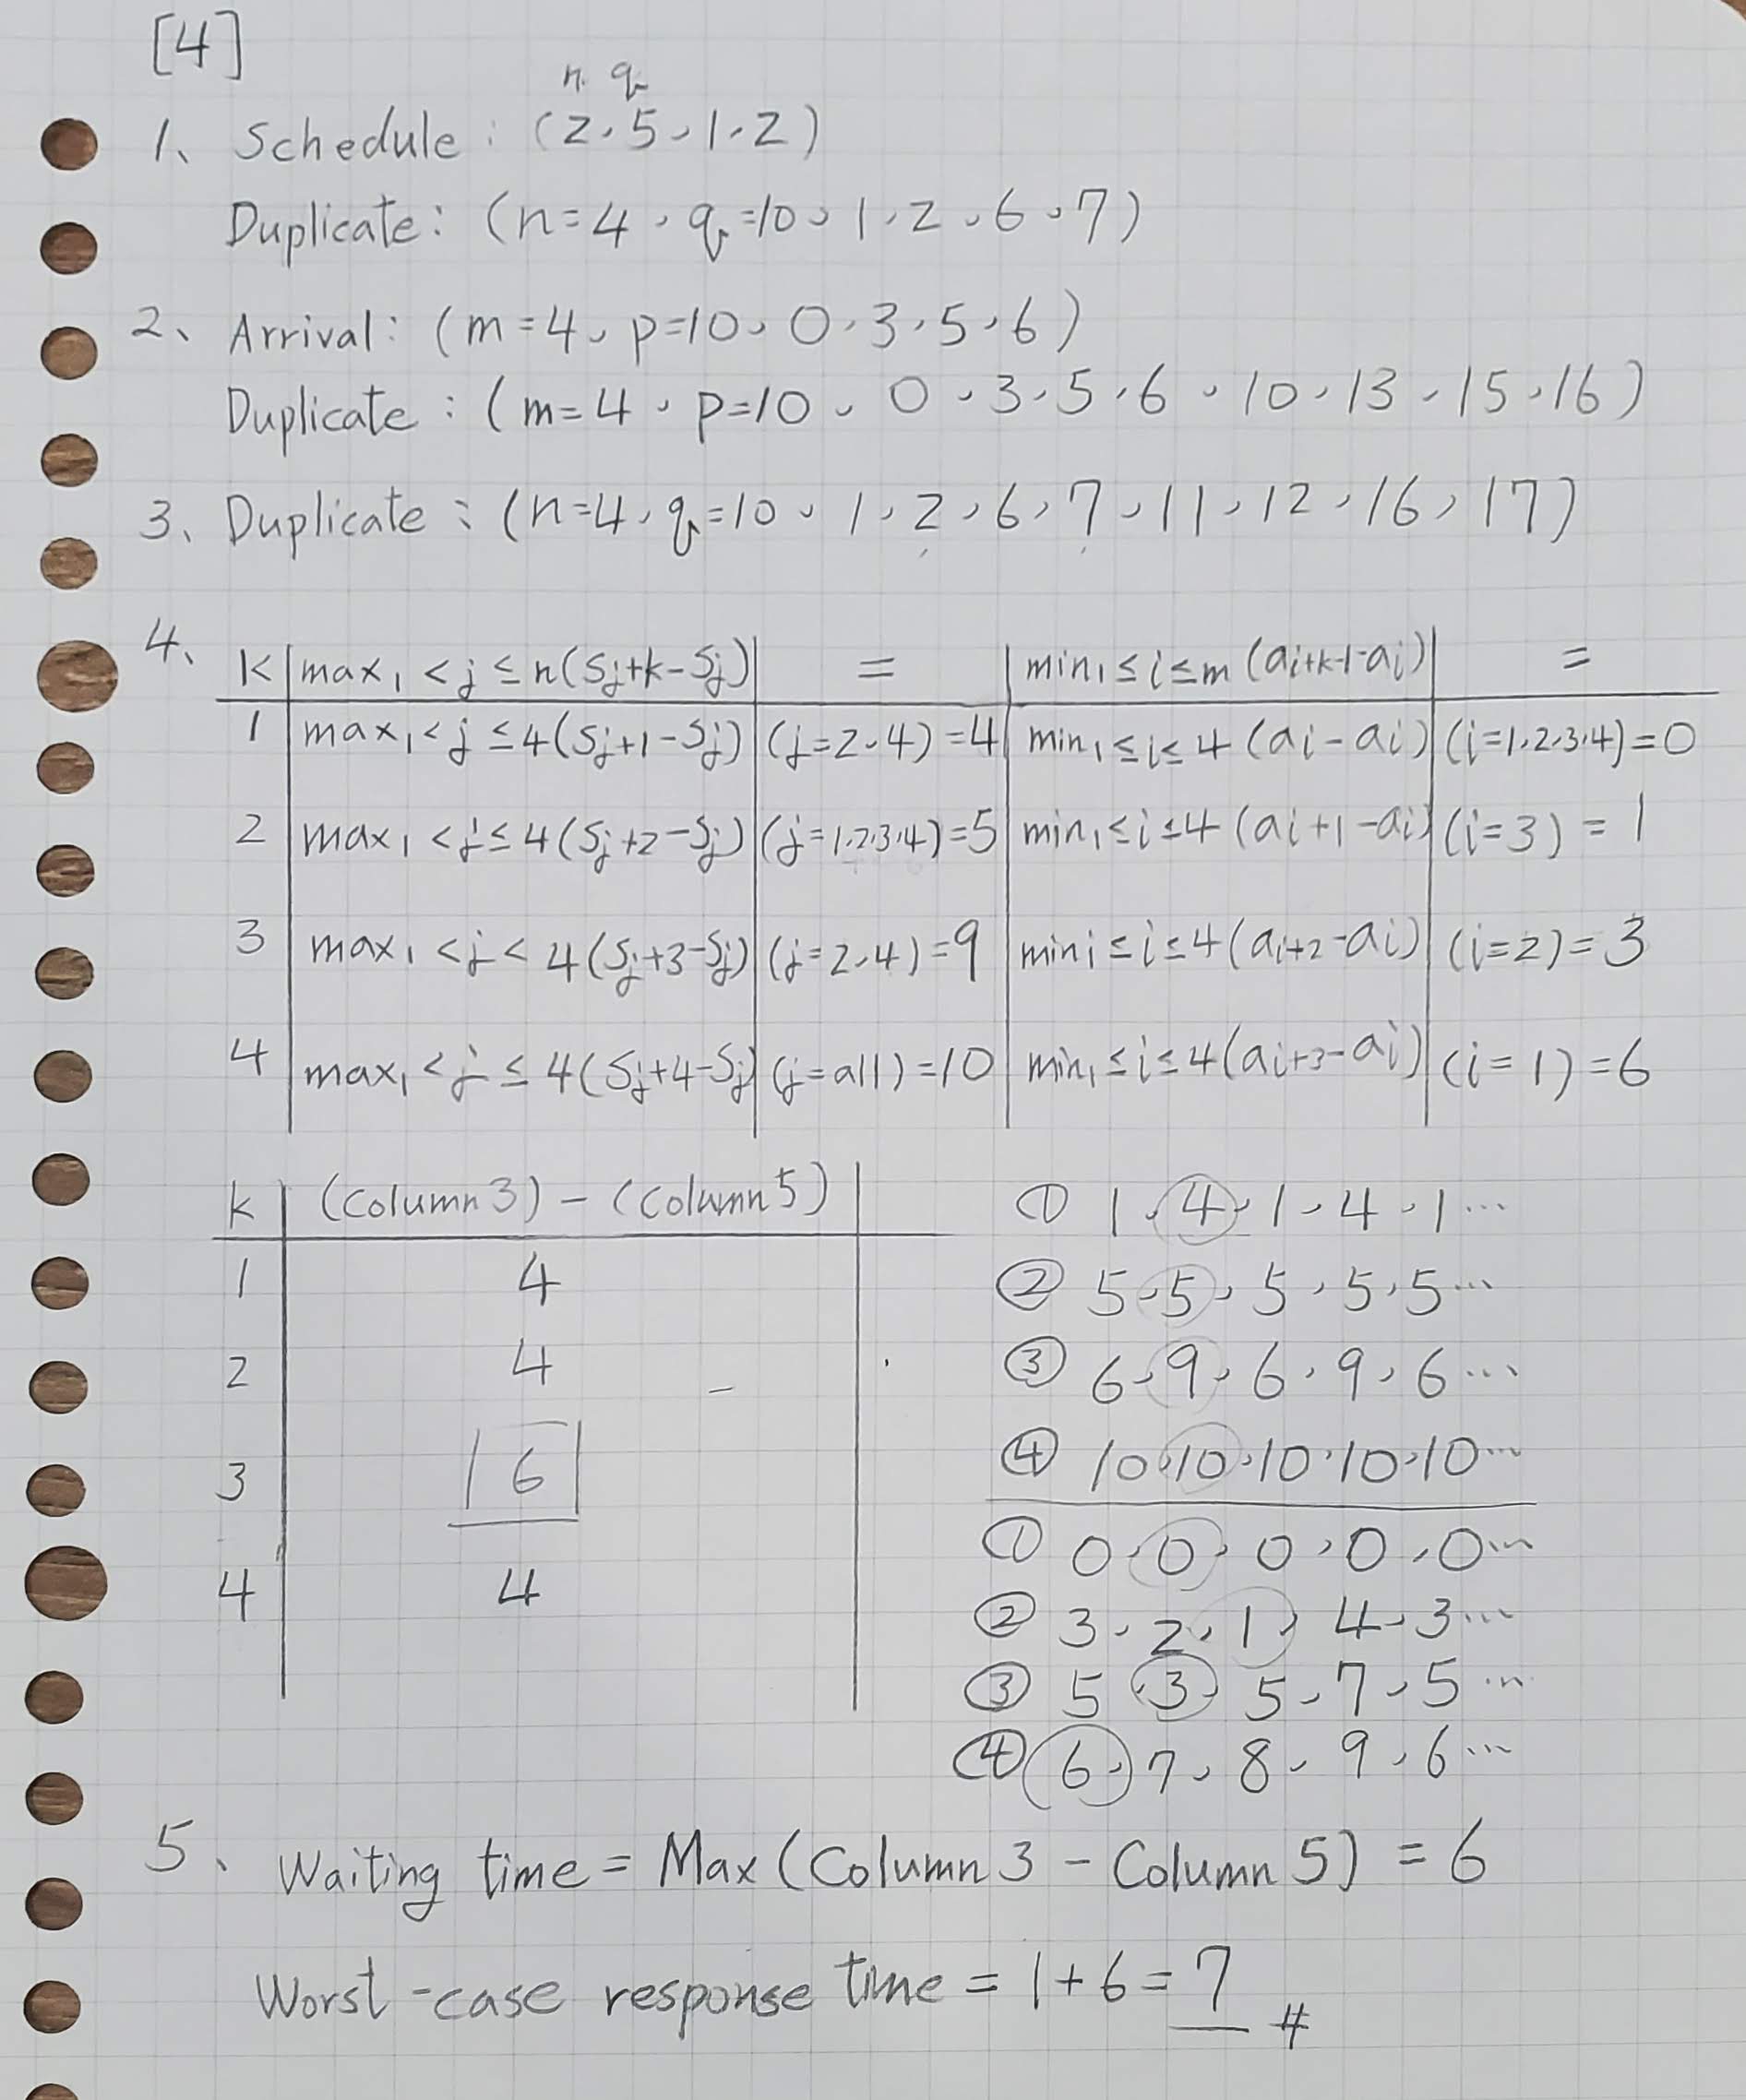 [4]
n. q
1、Schedule : (2, 5, 1, 2)
Duplicate: (n=4, q=10, 1, 2, 6, 7)
2、Arrival: (m=4, p=10, 0, 3, 5, 6)
Duplicate : (m=4, p=10, 0, 3, 5, 6, 10, 13, 15, 16)
3、Duplicate : (n=4, q=10, 1, 2, 6, 7, 11, 12, 16, 17)
4、
k | max₁<j≤n(Sj+k-Sj) | = | min₁≤i≤m(ai+k-1-ai) | =
1 | max₁<j≤4(Sj+1-Sj) | (j=2,4)=4 | min₁≤i≤4(ai-ai) | (i=1,2,3,4)=0
2 | max₁<j≤4(Sj+2-Sj) | (j=1,2,3,4)=5 | min₁≤i≤4(ai+1-ai) | (i=3)=1
3 | max₁<j<4(Sj+3-Sj) | (j=2,4)=9 | mini≤i≤4(ai+2-ai) | (i=2)=3
4 | max₁<j≤4(Sj+4-Sj) | (j=all)=10 | min₁≤i≤4(ai+3-ai) | (i=1)=6
k | (Column 3) - (Column 5)
1 | 4
2 | 4
3 | 6
4 | 4
① 1, 4, 1, 4, 1 ...
② 5, 5, 5, 5, 5 ...
③ 6, 9, 6, 9, 6 ...
④ 10, 10, 10, 10, 10 ...
① 0, 0, 0, 0, 0 ...
② 3, 2, 1, 4, 3 ...
③ 5, 3, 5, 7, 5 ...
④ 6, 7, 8, 9, 6 ...
5、Waiting time = Max (Column 3 - Column 5) = 6
Worst-case response time = 1+6 = 7 #